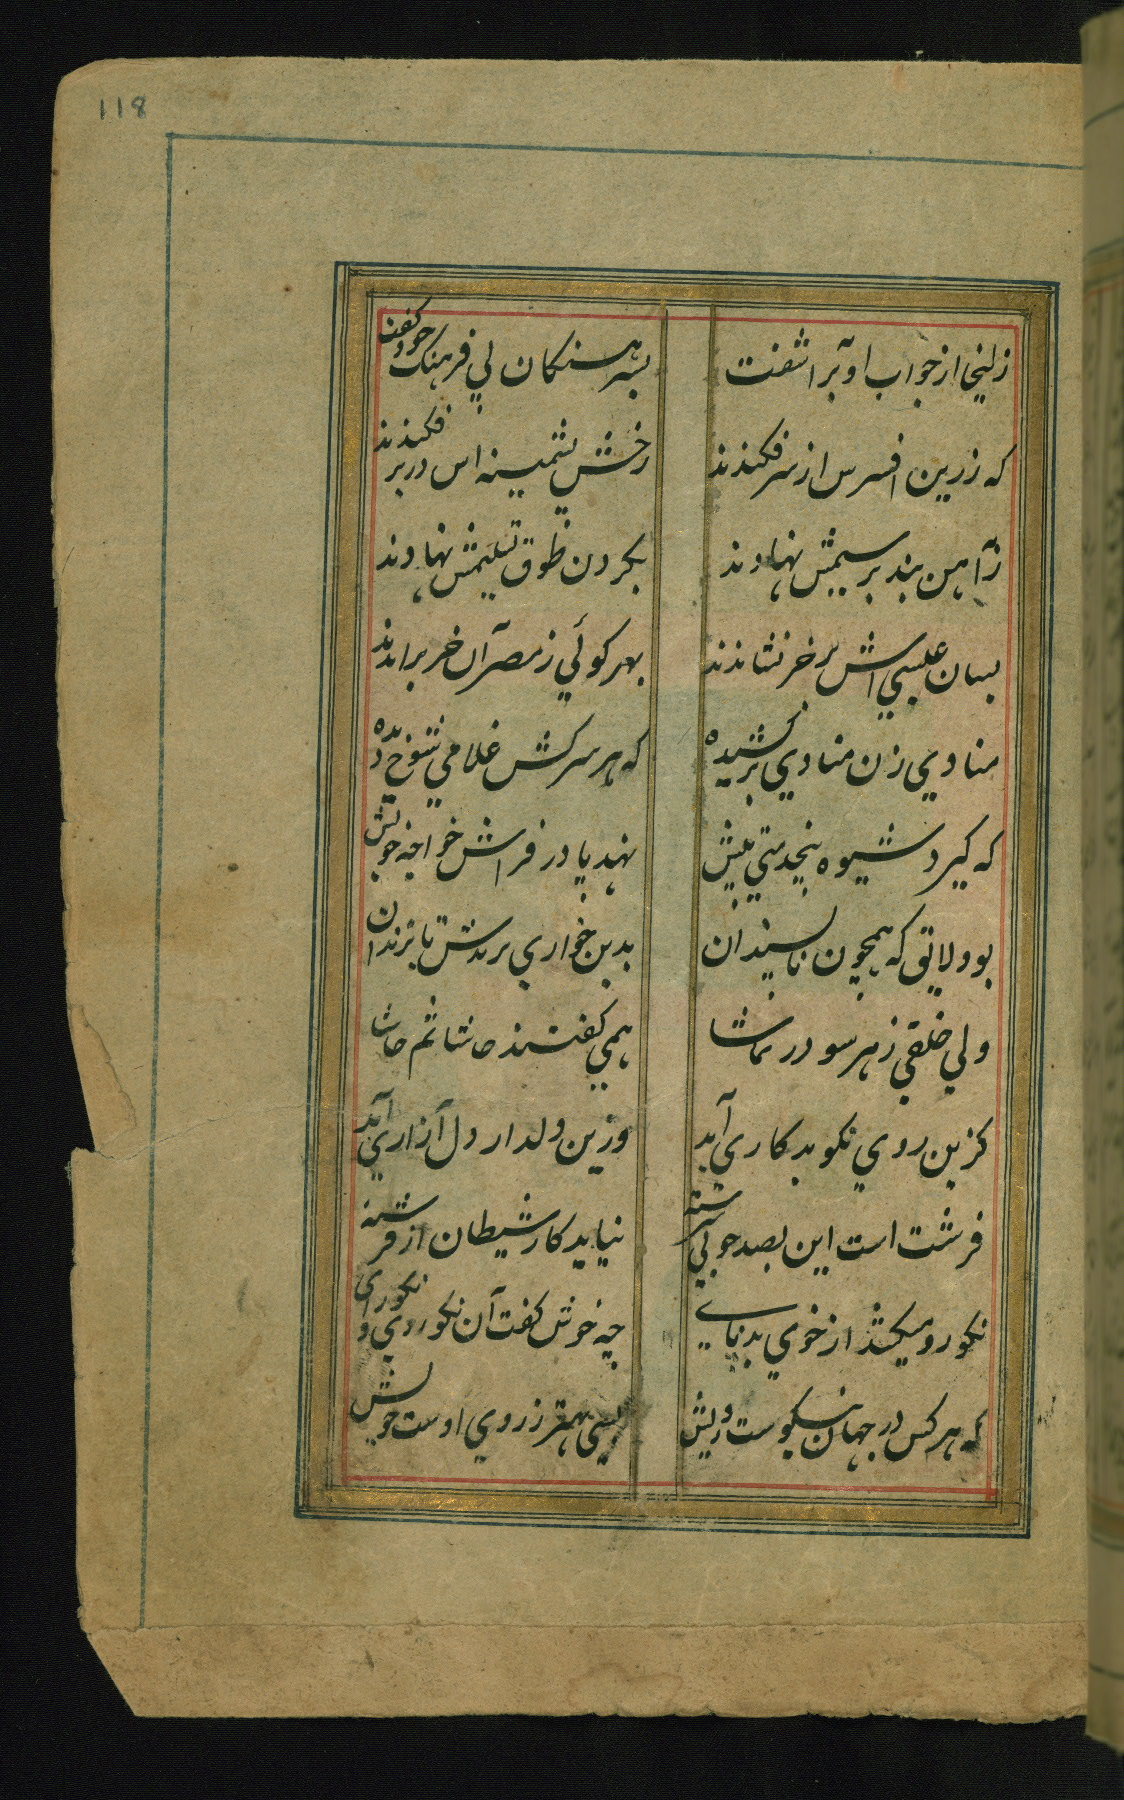 118
زلیخا از جواب او برآشفت بسرهنگان بی فرهنگ خود گفت
که زرین افسرس از سر فکندند رخش پشمینه اس در بر فکندند
زآهن بند بر سیمش نهادند بکردن طوق تسلیمش نهادند
بسان عیسی اش بر خر نشاندند بهر کوئی ز مصر آن خر براندند
منادی زن منادی برکشیده که هر سرکش غلامی شوخ دیده
که کیرد شیوه بیحرمتی پیش نهد پا در فراش خواجه خویش
بود لایق که همچون ناپسندان بدین خواری برندش تا بزندان
ولی خلقی ز هر سو در تماشا همی کفتند حاشا ثم حاشا
کزین روی نکو بدکاری آید وزین دلدار دل آزاری آید
فرشت است این بصد خوبی سرشته نیاید کار شیطان از فرشته
نکو رو میکشد از خوی بد پای چه خوش کفت آن نکو روی نکورای
که هر کس در جهان نیکوست رویش بسی بهتر ز روی اوست خویش